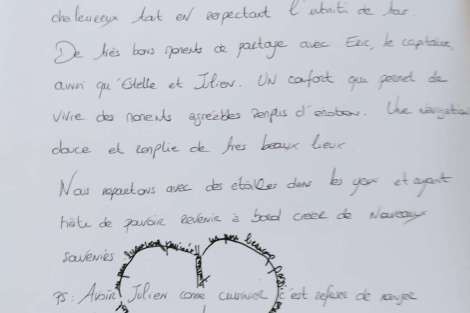 chaleureux tout en respectant l'intimité de tous.
De très bons moments de partage avec Eric, le capitaine,
aussi qu'Estelle et Julien. Un confort qui permet de
vivre des moments agréables remplis d'émotion. Une navigation
douce et remplie de très beaux lieux
Nous repartons avec des étoiles dans les yeux et ayant
hâte de pouvoir revenir à bord créer de nouveaux
souvenirs
PS: Avoir Julien comme cuisinier c'est refuser de manger